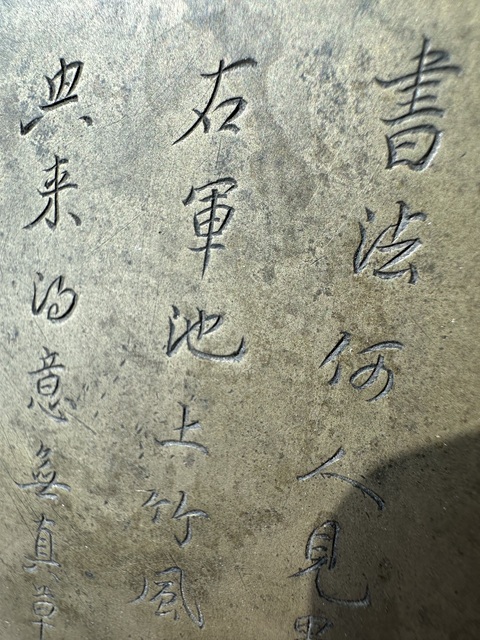 書法何人見
右軍池上竹風
興来得意無真草